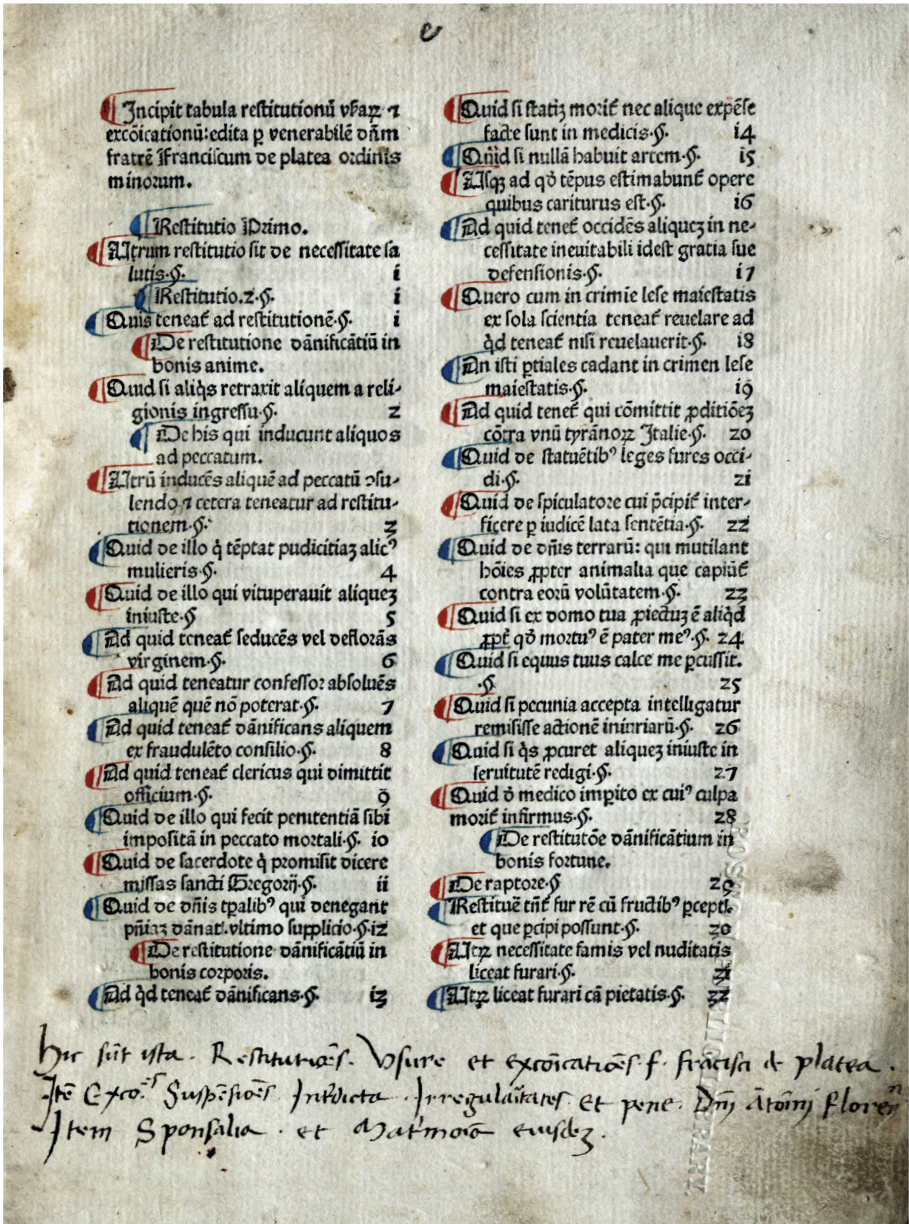 e
¶ Incipit tabula restitutionū vsaꝝ ⁊
excōicationū: edita ꝑ venerabilē dn̄m
fratrē Franciscum de platea ordinis
minorum.
¶ Restitutio Primo.
¶ Utrum restitutio sit de necessitate sa
lutis.§. i
¶ Restitutio.2.§. i
¶ Quis teneat᷑ ad restitutionē.§. i
¶ De restitutione dānificātiū in
bonis anime.
¶ Quid si aliq̇s retraxit aliquem a reli-
gionis ingressu.§. 2
¶ De his qui inducunt aliquos
ad peccatum.
¶ Utrū inducēs aliquē ad peccatū ↄsu-
lendo ⁊ cetera teneatur ad restitu-
tionem.§. 3
¶ Quid de illo q̇ tēptat pudicitiaȝ alicꝰ
mulieris.§. 4
¶ Quid de illo qui vituperauit aliqueȝ
iniuste.§ 5
¶ Ad quid teneat᷑ seducēs vel deflorās
virginem.§. 6
¶ Ad quid teneatur confessor absoluēs
aliquē quē nō poterat.§. 7
¶ Ad quid teneat᷑ dānificans aliquem
ex fraudulēto consilio.§. 8
¶ Ad quid teneat᷑ clericus qui dimittit
officium.§. 9
¶ Quid de illo qui fecit penitentiā sibi
impositā in peccato mortali.§. io
¶ Quid de sacerdote q̇ promisit dicere
missas sancti Gregorij.§. ii
¶ Quid de dn̄is tꝑalibꝰ qui denegant
pn̄iaȝ dānat᷑.vltimo supplicio.§.i2
¶ De restitutione dānificātiū in
bonis corporis.
¶ Ad q̇d teneat᷑ dānificans.§. i3
¶ Quid si statiȝ morit᷑ nec alique expēse
facte sunt in medicis.§. i4
¶ Quid si nullā habuit artem.§. i5
¶ Usqꝫ ad qđ tēpus estimabunt᷑ opere
quibus cariturus est.§. i6
¶ Ad quid tenet᷑ occidēs aliqueȝ in ne-
cessitate ineuitabili idest gratia sue
defensionis.§. i7
¶ Quero cum in crimīe lese maiestatis
ex sola scientia teneat᷑ reuelare ad
q̇d teneat᷑ nisi reuelauerit.§. i8
¶ An isti ꝑtiales cadant in crimen lese
maiestatis.§. i9
¶ Ad quid tenet᷑ qui cōmittit ꝓditiōeȝ
cōtra vnū tyrānoꝝ Italie.§. 20
¶ Quid de statuētibꝰ leges fures occi-
di.§. 2i
¶ Quid de spiculatore cui p̄cipit᷑ inter-
ficere ꝑ iudicē lata sentētia.§. 22
¶ Quid de dn̄is terrarū: qui mutilant
hōies ꝓpter animalia que capiūt᷑
contra eorū volūtatem.§. 23
¶ Quid si ex domo tua ꝓiectuȝ ē aliq̇d
ꝓpt᷑ qđ mortuꝰ ē pater meꝰ.§. 24
¶ Quid si equus tuus calce me ꝑcussit.
.§. 25
¶ Quid si pecunia accepta intelligatur
remisisse actionē iniuriarū.§. 26
¶ Quid si q̇s ꝓcuret aliqueȝ iniuste in
seruitutē redigi.§. 27
¶ Quid đ medico imꝑito ex cuiꝰ culpa
morit᷑ infirmus.§. 28
¶ De restitutōe dānificātium in
bonis fortune.
¶ De raptore.§ 29
¶ Restituē tn̄t᷑ fur rē cū fructibꝰ ꝑcept᷑.
et que ꝑcipi possunt.§. 30
¶ Utꝝ necessitate famis vel nuditatis
liceat furari.§. 3i
¶ Utꝝ liceat furari cā pietatis.§. 32
Hic sūt ista. Restitutiōes. Vsure et excōicatiōes f. frācisci de platea.
Itē Exco.ēs Suspēsiōes. Intˀdicta. Irregulaītates et pene. Dn̄i Ātōini floren̄
Item Sponsalia. et Matˀmoīa eiusdeȝ.
BOSTON PUBLIC LIBRARY